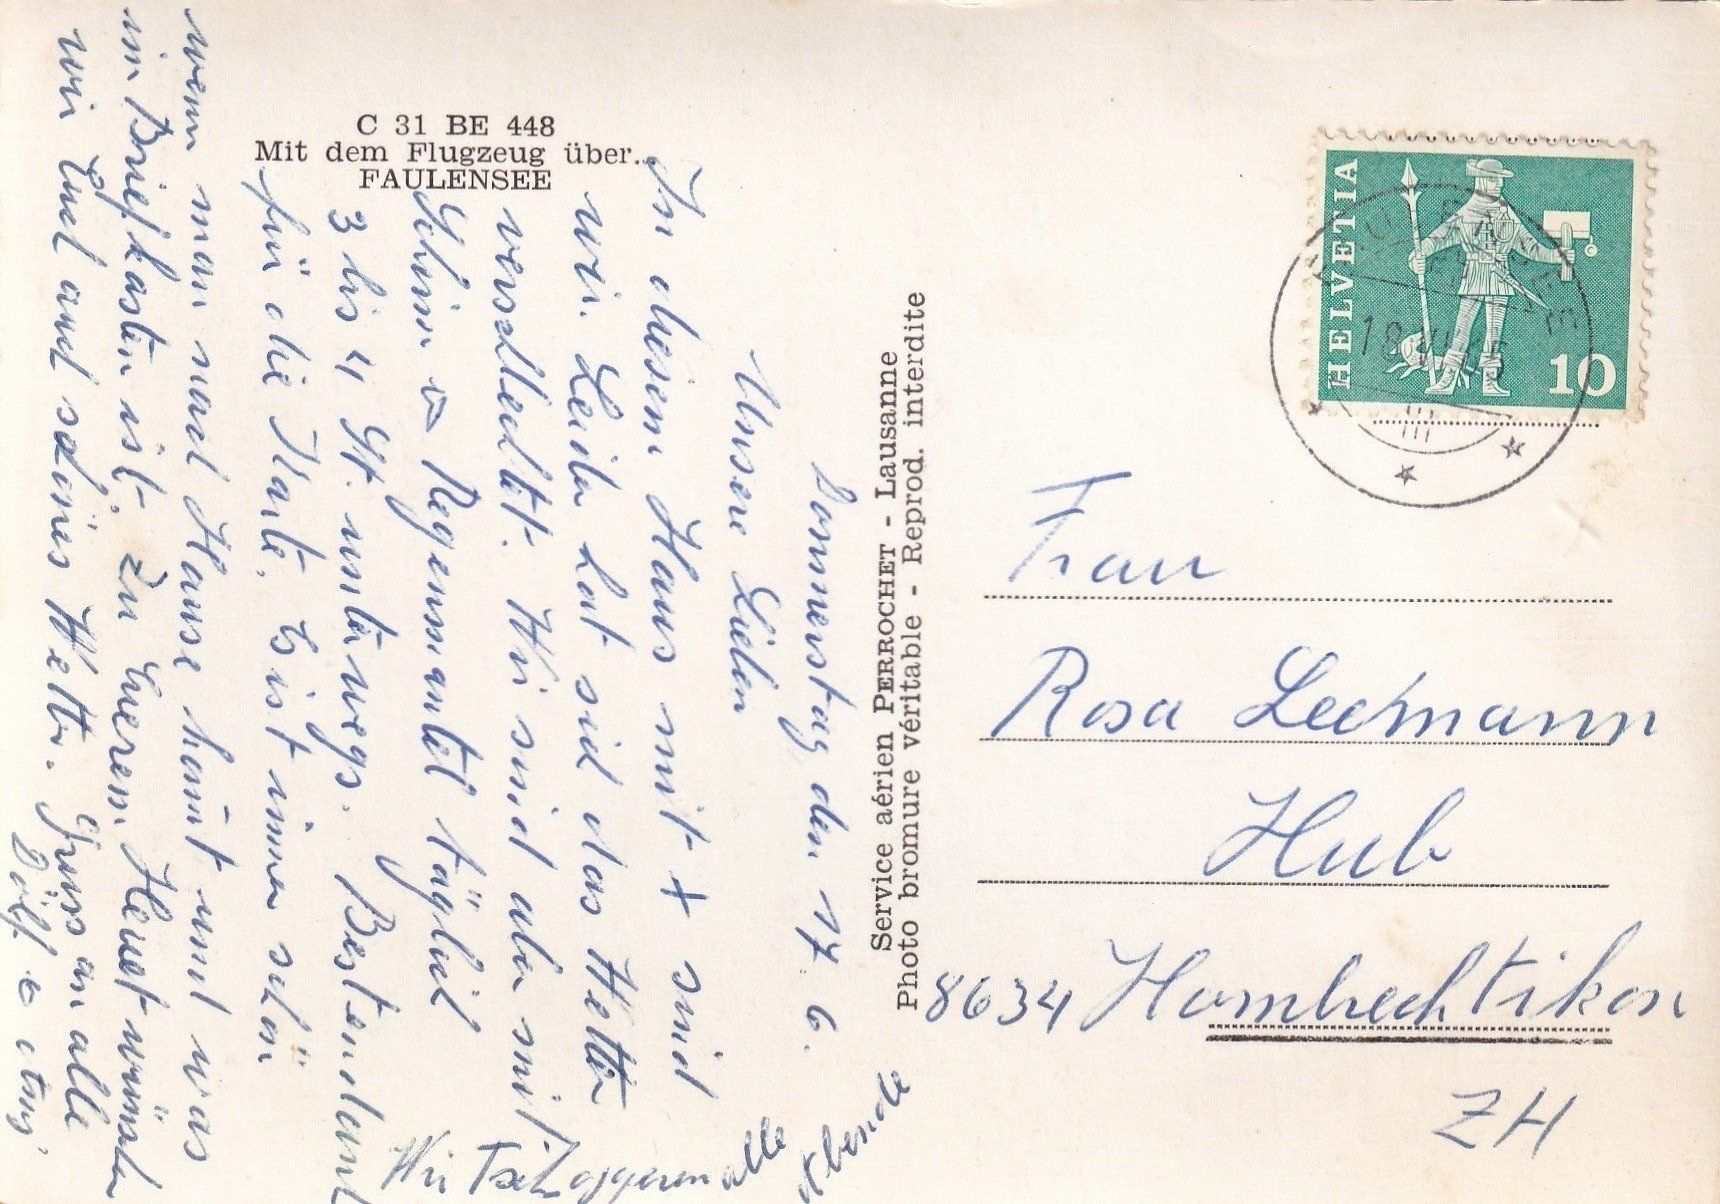 C 31 BE 448
Mit dem Flugzeug über...
FAULENSEE
Donnerstag den 17. 6.
Unsere Lieben
In diesem Haus mit + sind
wir. Leider hat sich das Wetter
verschlechtert. Wir sind aber mit
Schirm Regenmantel täglich
3 bis 4 St. unterwegs. Besten Dank
für die Karte. Es ist immer schön
wenn man nach Hause kommt und was
im Briefkasten ist. Zu Euerem Heuet wünschen
wir Euch auch schönes Wetter. Gruss an alle
Wir alle
Abende
Service aérien PERROCHET - Lausanne
Photo bromure véritable - Reprod. interdite
HELVETIA
10
18.VI.65
Frau
Rosa Leemann
Hub
8634 Hombrechtikon
ZH